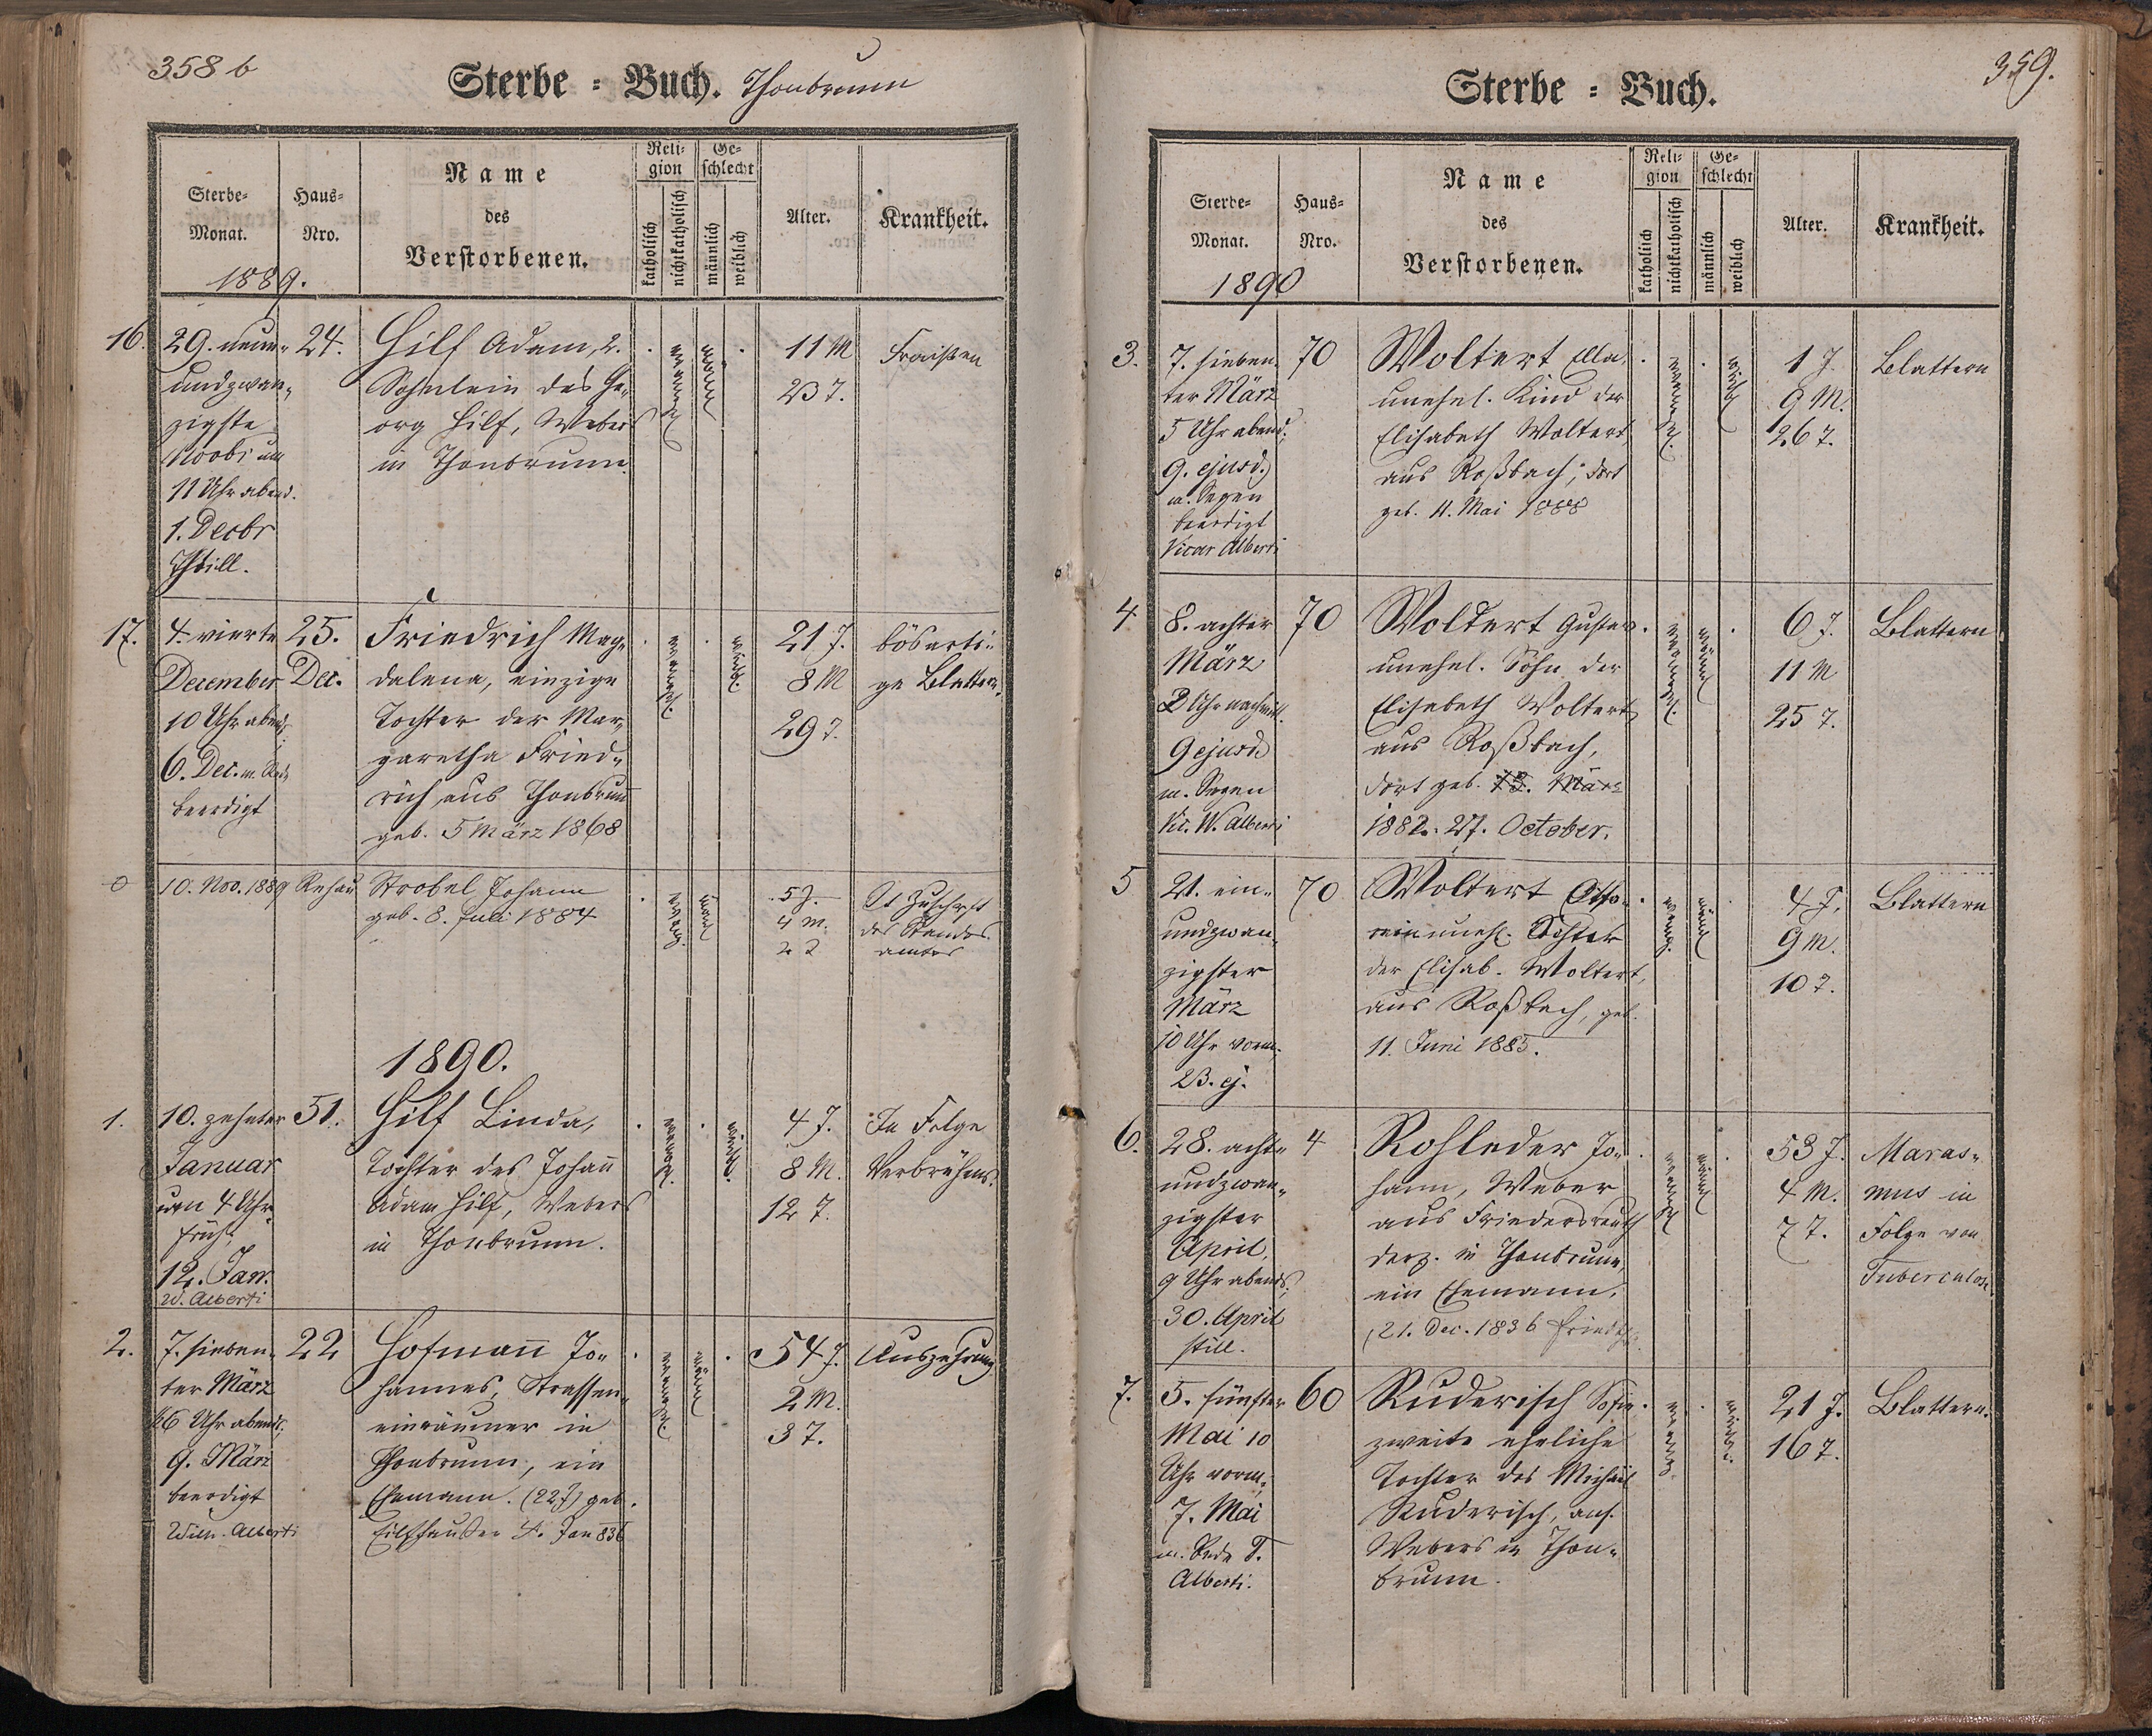 358 b
Sterbe = Buch. Thonbrunn
Sterbe-Monat.
Haus-Nro.
Name des Verstorbenen.
Reli-gion
katholisch
nichtkatholisch
Ge-schlecht
männlich
weiblich
Alter.
Krankheit.
1889.
16.
29. neun-
undzwan-
zigste
Novbr um
11 Uhr abend.
1. Decbr
Still.
24.
Hilf Adam, 2.
Söhnlein des Ge-
org Hilf, Webers
in Thonbrunn.
11 M
23 T.
Fraisen
17.
4. vierte
December
10 Uhr abends
6. Dec. m. Rede
beerdigt
25.
Dec.
Friedrich Mag-
dalena, einzige
Tochter der Mar-
garetha Fried-
rich aus Thonbrunn
geb. 5 März 1868
21 J.
8 M
29 T.
bösarti-
ge Blattern.
0
10. Nov. 1889
Rehau.
Strobel Johann
geb. 8. Juli 1884
5 J.
4 M.
2 T
Lt Zuschrift
des Standes-
amtes
1890.
1.
10. zehnter
Januar
um 4 Uhr
früh,
12. Jan.
W. Alberti
51.
Hilf Linda,
Tochter des Johann
Adam Hilf, Webers
in Thonbrunn.
4 J.
8 M.
12 T.
In Folge
Verbrühens.
2.
7. sieben-
ter März
6 Uhr abends,
9. März
beerdigt
Wilh. Alberti
22
Hofmann Jo-
hannes, Strassen-
einräumer in
Thonbrunn, ein
Ehemann. (22 J) geb.
4. Jan 836
54 J.
2 M.
3 T.
Auszehrung
359.
Sterbe = Buch.
Sterbe-Monat.
Haus-Nro.
Name des Verstorbenen.
Reli-gion
katholisch
nichtkatholisch
Ge-schlecht
männlich
weiblich
Alter.
Krankheit.
1890
3.
7. sieben-
ter März
5 Uhr abend;
9. ejusd.
m. Segen
beerdigt
Vicar Alberti
70
Woltert Ella,
unehel. Kind der
Elisabeth Woltert
aus Roßbach; dort
geb. 11. Mai 1888
1 J.
9 M.
26 T.
Blattern
4
8. achter
März
2 Uhr nachmit.
9 ejusd.
m. Segen
Vic. W. Alberti
70
Woltert Gustav
unehel. Sohn der
Elisabeth Woltert,
aus Roßbach,
dort geb. 13. März
1882. 27. October.
6 J.
11 M
25 T.
Blattern
5
21. ein-
undzwan-
zigster
März
10 Uhr vorm.
23. ej.
70
Woltert Otto
unehl.
der Elisab. Woltert,
aus Roßbach, geb.
11. Juni 1885.
4 J.
9 M.
10 T.
Blattern
6.
28. acht-
undzwan-
zigster
April,
9 Uhr abends,
30. April
still.
4
Rohleder Jo-
hann, Weber
aus Friedersreuth
derz. in Thonbrunn,
ein Ehemann.
21. Dec. 1836
53 J.
4 M.
7 T.
Maras-
mus in
Folge von
Tuberculose
7.
5. fünfter
Mai 10
Uhr vorm.,
7. Mai
m. Rede T.
Alberti.
60
Ruderisch Sofie
zweite eheliche
Tochter des Michael
Ruderisch, ans.
Webers in Thon-
brunn.
21 J.
16 T.
Blattern.